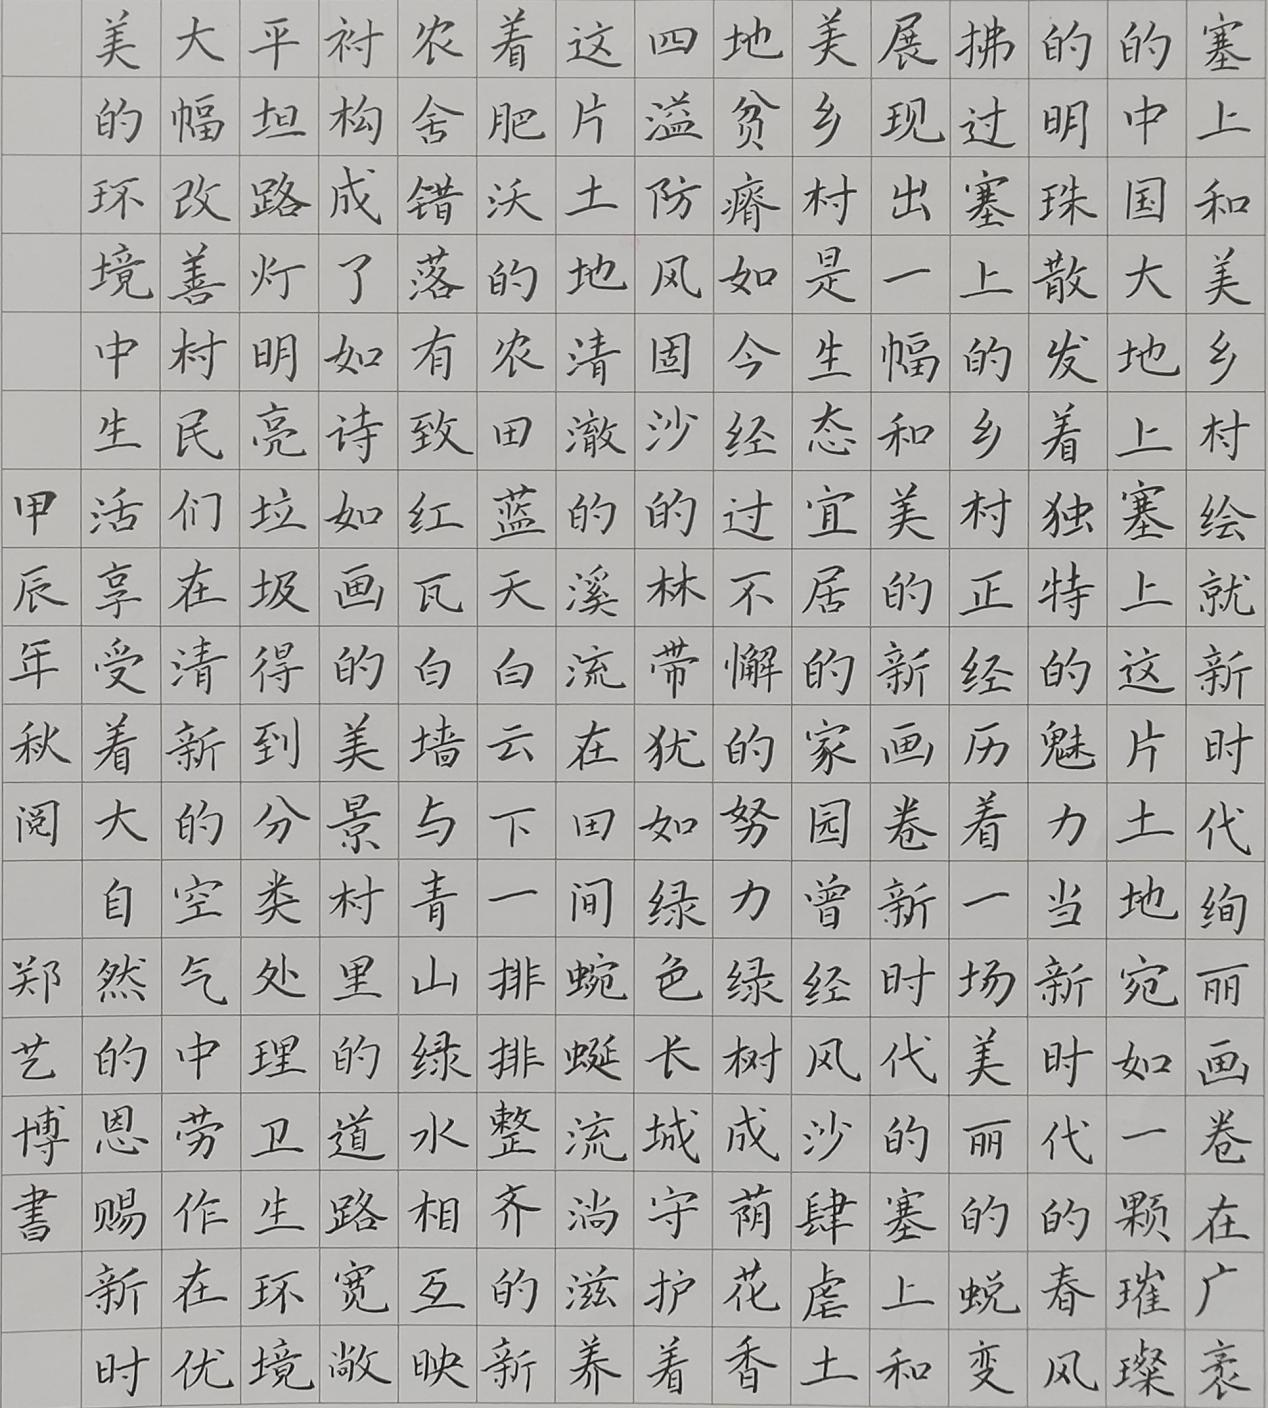 塞上和美乡村绘就新时代绚丽画卷在广袤
的中国大地上塞上这片土地宛如一颗璀璨
的明珠散发着独特的魅力当新时代的春风
拂过塞上的乡村正经历着一场美丽的蜕变
展现出一幅和美的新画卷新时代的塞上和
美乡村是生态宜居的家园曾经风沙肆虐土
地贫瘠如今经过不懈的努力绿树成荫花香
四溢防风固沙的林带犹如绿色长城守护着
这片土地清澈的溪流在田间蜿蜒流淌滋养
着肥沃的农田蓝天白云下一排排整齐的新
农舍错落有致红瓦白墙与青山绿水相互映
衬构成了如诗如画的美景村里的道路宽敞
平坦路灯明亮垃圾得到分类处理卫生环境
大幅改善村民们在清新的空气中劳作在优
美的环境中生活享受着大自然的恩赐新时
甲辰年秋阅郑艺博書